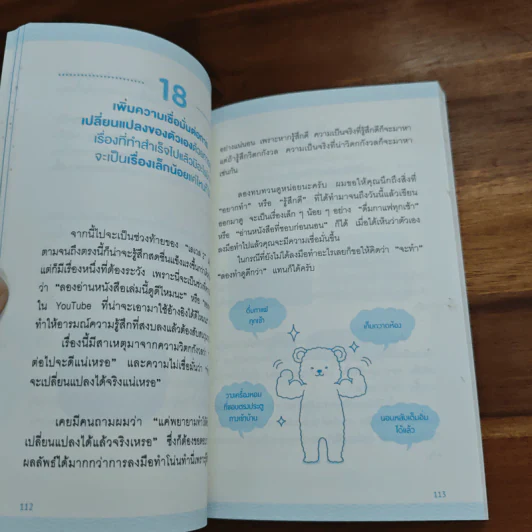 18
เพิ่มความเชื่อมั่นต่อการ
เปลี่ยนแปลงของตัวเอง
เรื่องที่ทำสำเร็จไปแล้ว
จะเป็นเรื่องเล็กน้อย
จากนี้ไปจะเป็นช่วงท้ายของ
ตามจนถึงตรงนี้ก็น่าจะรู้สึกสดชื่นแข็งแรงขึ้น
แต่ก็มีเรื่องหนึ่งที่ต้องระวัง เพราะนี่จะเป็น
ว่า “ลองอ่านหนังสือเล่มนี้ดูดีไหมนะ” หรือ
ใน YouTube ที่น่าจะเอามาใช้อ้างอิงได้
ทำให้อารมณ์ความรู้สึกที่สงบลงแล้วต้อง
เรื่องนี้มีสาเหตุมาจากความวิตกกังวล
ต่อไปจะดีแน่เหรอ” และความไม่เชื่อมั่นว่า
จะเปลี่ยนแปลงได้จริงแน่เหรอ”
เคยมีคนถามผมว่า “แค่พยายามทำ
เปลี่ยนแปลงได้แล้วจริงเหรอ” ซึ่งก็ต้องขอ
ผลลัพธ์ได้มากกว่าการลงมือทำโน่นทำนี่
112
อย่างแน่นอน เพราะหากรู้สึกดี ความเป็นจริงที่รู้สึกดีก็จะมาหา
แต่ถ้ารู้สึกวิตกกังวล ความเป็นจริงที่น่าวิตกกังวลก็จะมาหา
เช่นกัน
ลองทบทวนดูหน่อยนะครับ ผมขอให้คุณนึกถึงสิ่งที่
“อยากทำ” หรือ “รู้สึกดี” ที่ได้ทำมาจนถึงวันนี้แล้วเขียน
ออกมาดู จะเป็นเรื่องเล็ก ๆ น้อย ๆ อย่าง “ดื่มกาแฟทุกเช้า”
หรือ “อ่านหนังสือที่ชอบก่อนนอน” ก็ได้ เมื่อได้เห็นว่าตัวเอง
ลงมือทำไปแล้วคุณจะมีความเชื่อมั่นขึ้น
ในกรณีที่ยังไม่ได้ลงมือทำอะไรเลยก็ขอให้คิดว่า “จะทำ”
“ลองทำดูดีกว่า” แทนก็ได้ครับ
ดื่มกาแฟ
ทุกเช้า
เก็บกวาดห้อง
วางเครื่องหอม
ที่ชอบตรงประตู
ทางเข้าบ้าน
นอนหลับเต็มอิ่ม
ได้แล้ว
113